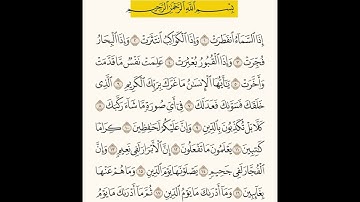 بِسْمِ اللَّهِ الرَّحْمَٰنِ الرَّحِيمِ
إِذَا السَّمَاءُ انفَطَرَتْ ١ وَإِذَا الْكَوَاكِبُ انتَثَرَتْ ٢ وَإِذَا الْبِحَارُ
فُجِّرَتْ ٣ وَإِذَا الْقُبُورُ بُعْثِرَتْ ٤ عَلِمَتْ نَفْسٌ مَّا قَدَّمَتْ
وَأَخَّرَتْ ٥ يَا أَيُّهَا الْإِنسَانُ مَا غَرَّكَ بِرَبِّكَ الْكَرِيمِ ٦ الَّذِي
خَلَقَكَ فَسَوَّاكَ فَعَدَلَكَ ٧ فِي أَيِّ صُورَةٍ مَّا شَاءَ رَكَّبَكَ ٨
كَلَّا بَلْ تُكَذِّبُونَ بِالدِّينِ ٩ وَإِنَّ عَلَيْكُمْ لَحَافِظِينَ ١٠ كِرَامًا
كَاتِبِينَ ١١ يَعْلَمُونَ مَا تَفْعَلُونَ ١٢ إِنَّ الْأَبْرَارَ لَفِي نَعِيمٍ ١٣ وَإِنَّ
الْفُجَّارَ لَفِي جَحِيمٍ ١٤ يَصْلَوْنَهَا يَوْمَ الدِّينِ ١٥ وَمَا هُمْ عَنْهَا
بِغَائِبِينَ ١٦ وَمَا أَدْرَاكَ مَا يَوْمُ الدِّينِ ١٧ ثُمَّ مَا أَدْرَاكَ مَا يَوْمُ